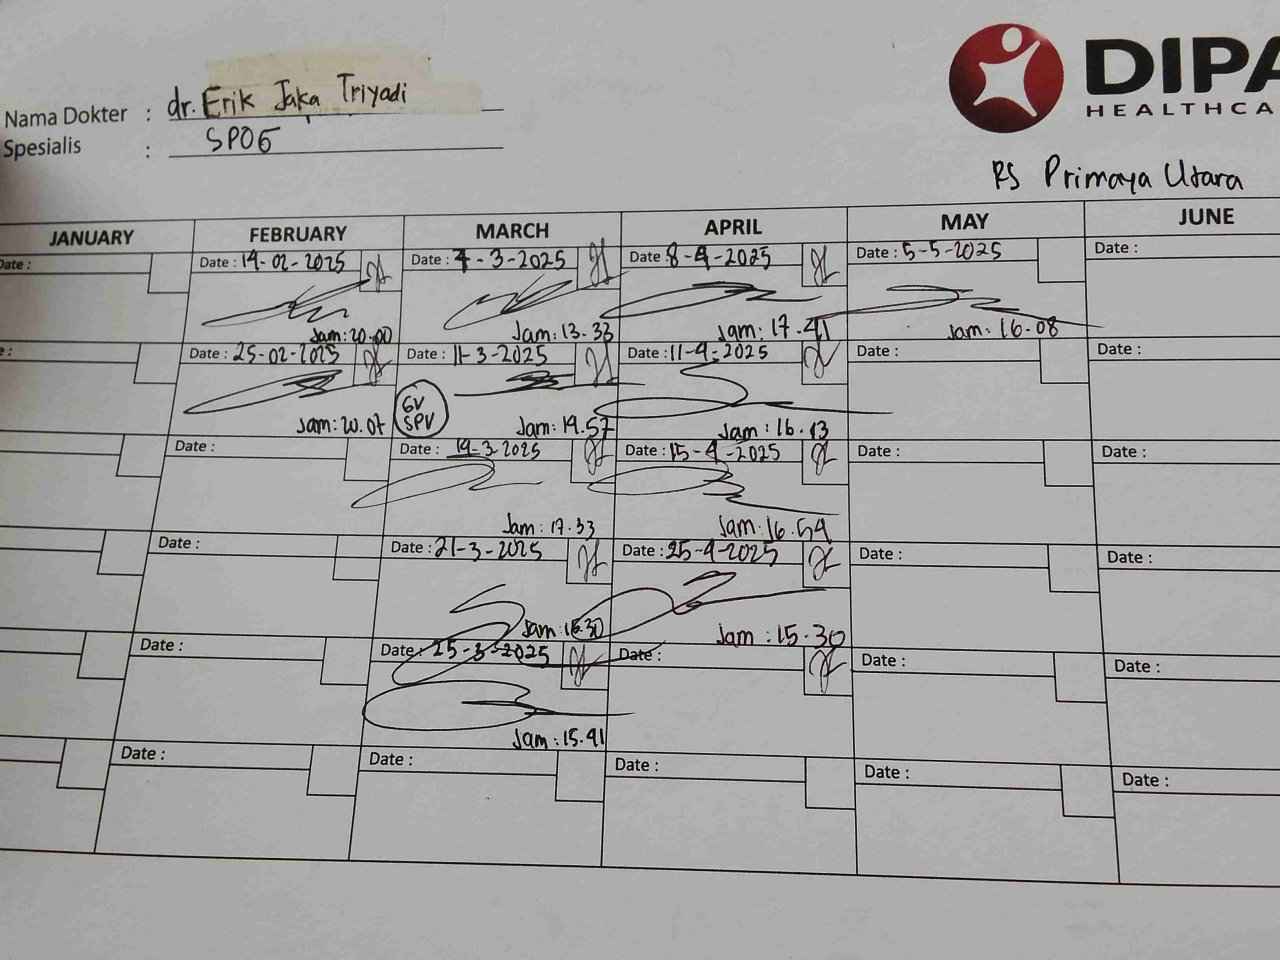 DIPA
HEALTHCA
Nama Dokter : dr. Erik Jaka Triyadi
Spesialis : SPOG
RS Primaya Utara
JANUARY FEBRUARY MARCH APRIL MAY JUNE
Date : Date : 19-02-2025 Date : 7-3-2025 Date : 8-4-2025 Date : 5-5-2025 Date :
Jam: 20.00 Jam: 13.33 Jam: 17.41 Jam: 16.08
Date : 25-02-2025 Date : 11-3-2025 Date : 11-4-2025 Date : Date :
GV
SPV
Jam: 20.07 Jam: 19.57 Jam: 16.13
Date : Date : 19-3-2025 Date : 15-4-2025 Date : Date :
Jam: 17.33 Jam: 16.54
Date : Date : 21-3-2025 Date : 25-4-2025 Date : Date :
Jam: 16.30 Jam: 15.30
Date : Date : 25-3-2025 Date : Date : Date :
Jam: 15.41
Date : Date : Date : Date : Date :